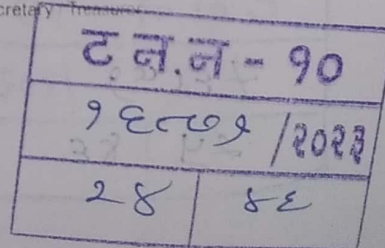 cretary Treasurer
ट न. न - १०
१६८७१ /२०२३
२४ ४६